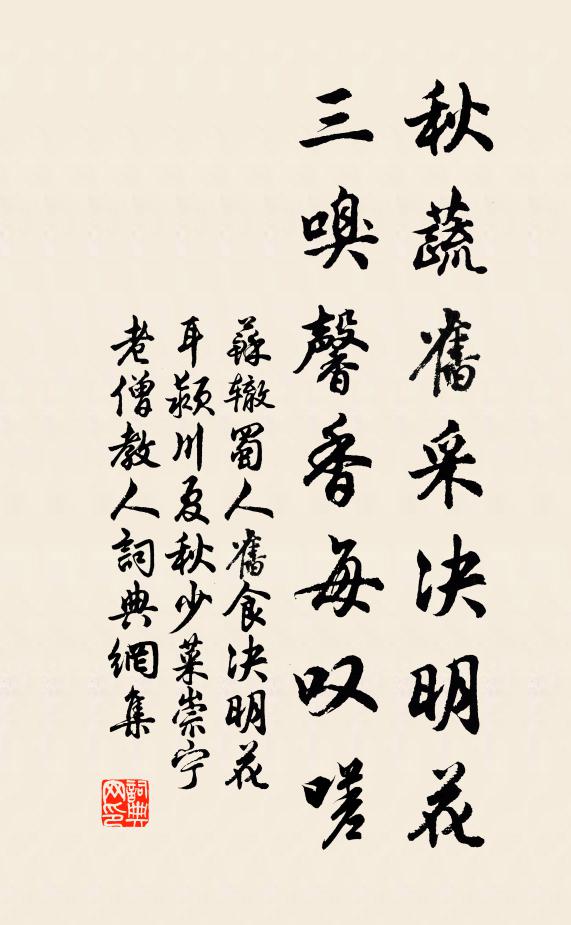 秋蔬舊采决明花
三嗅馨香每叹嗟
蘇辙蜀人舊食决明花
耳颍川夏秋少菜崇宁
老僧教人詞典網集
詞典网印